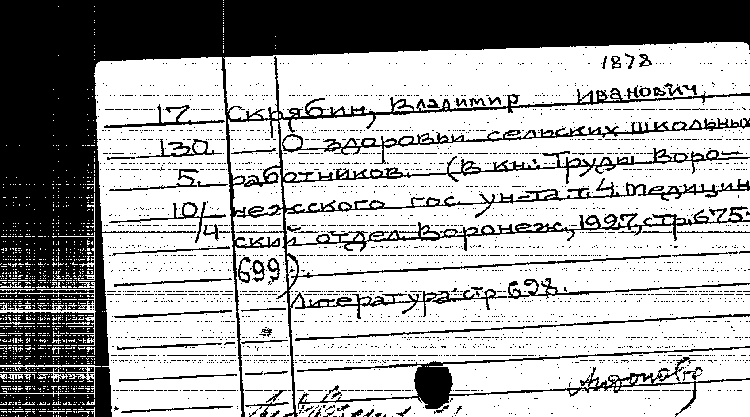 1878
17. Скрябин, Владимир Иванович,
130. О здоровьи сельских школьных
5. работников. (В кн.: Труды Воро-
10/4 нежсского гос. ун-та. т. 4. Медицин
ский отдел. Воронеж, 1927, стр. 675-
699).
Литература: стр 698.